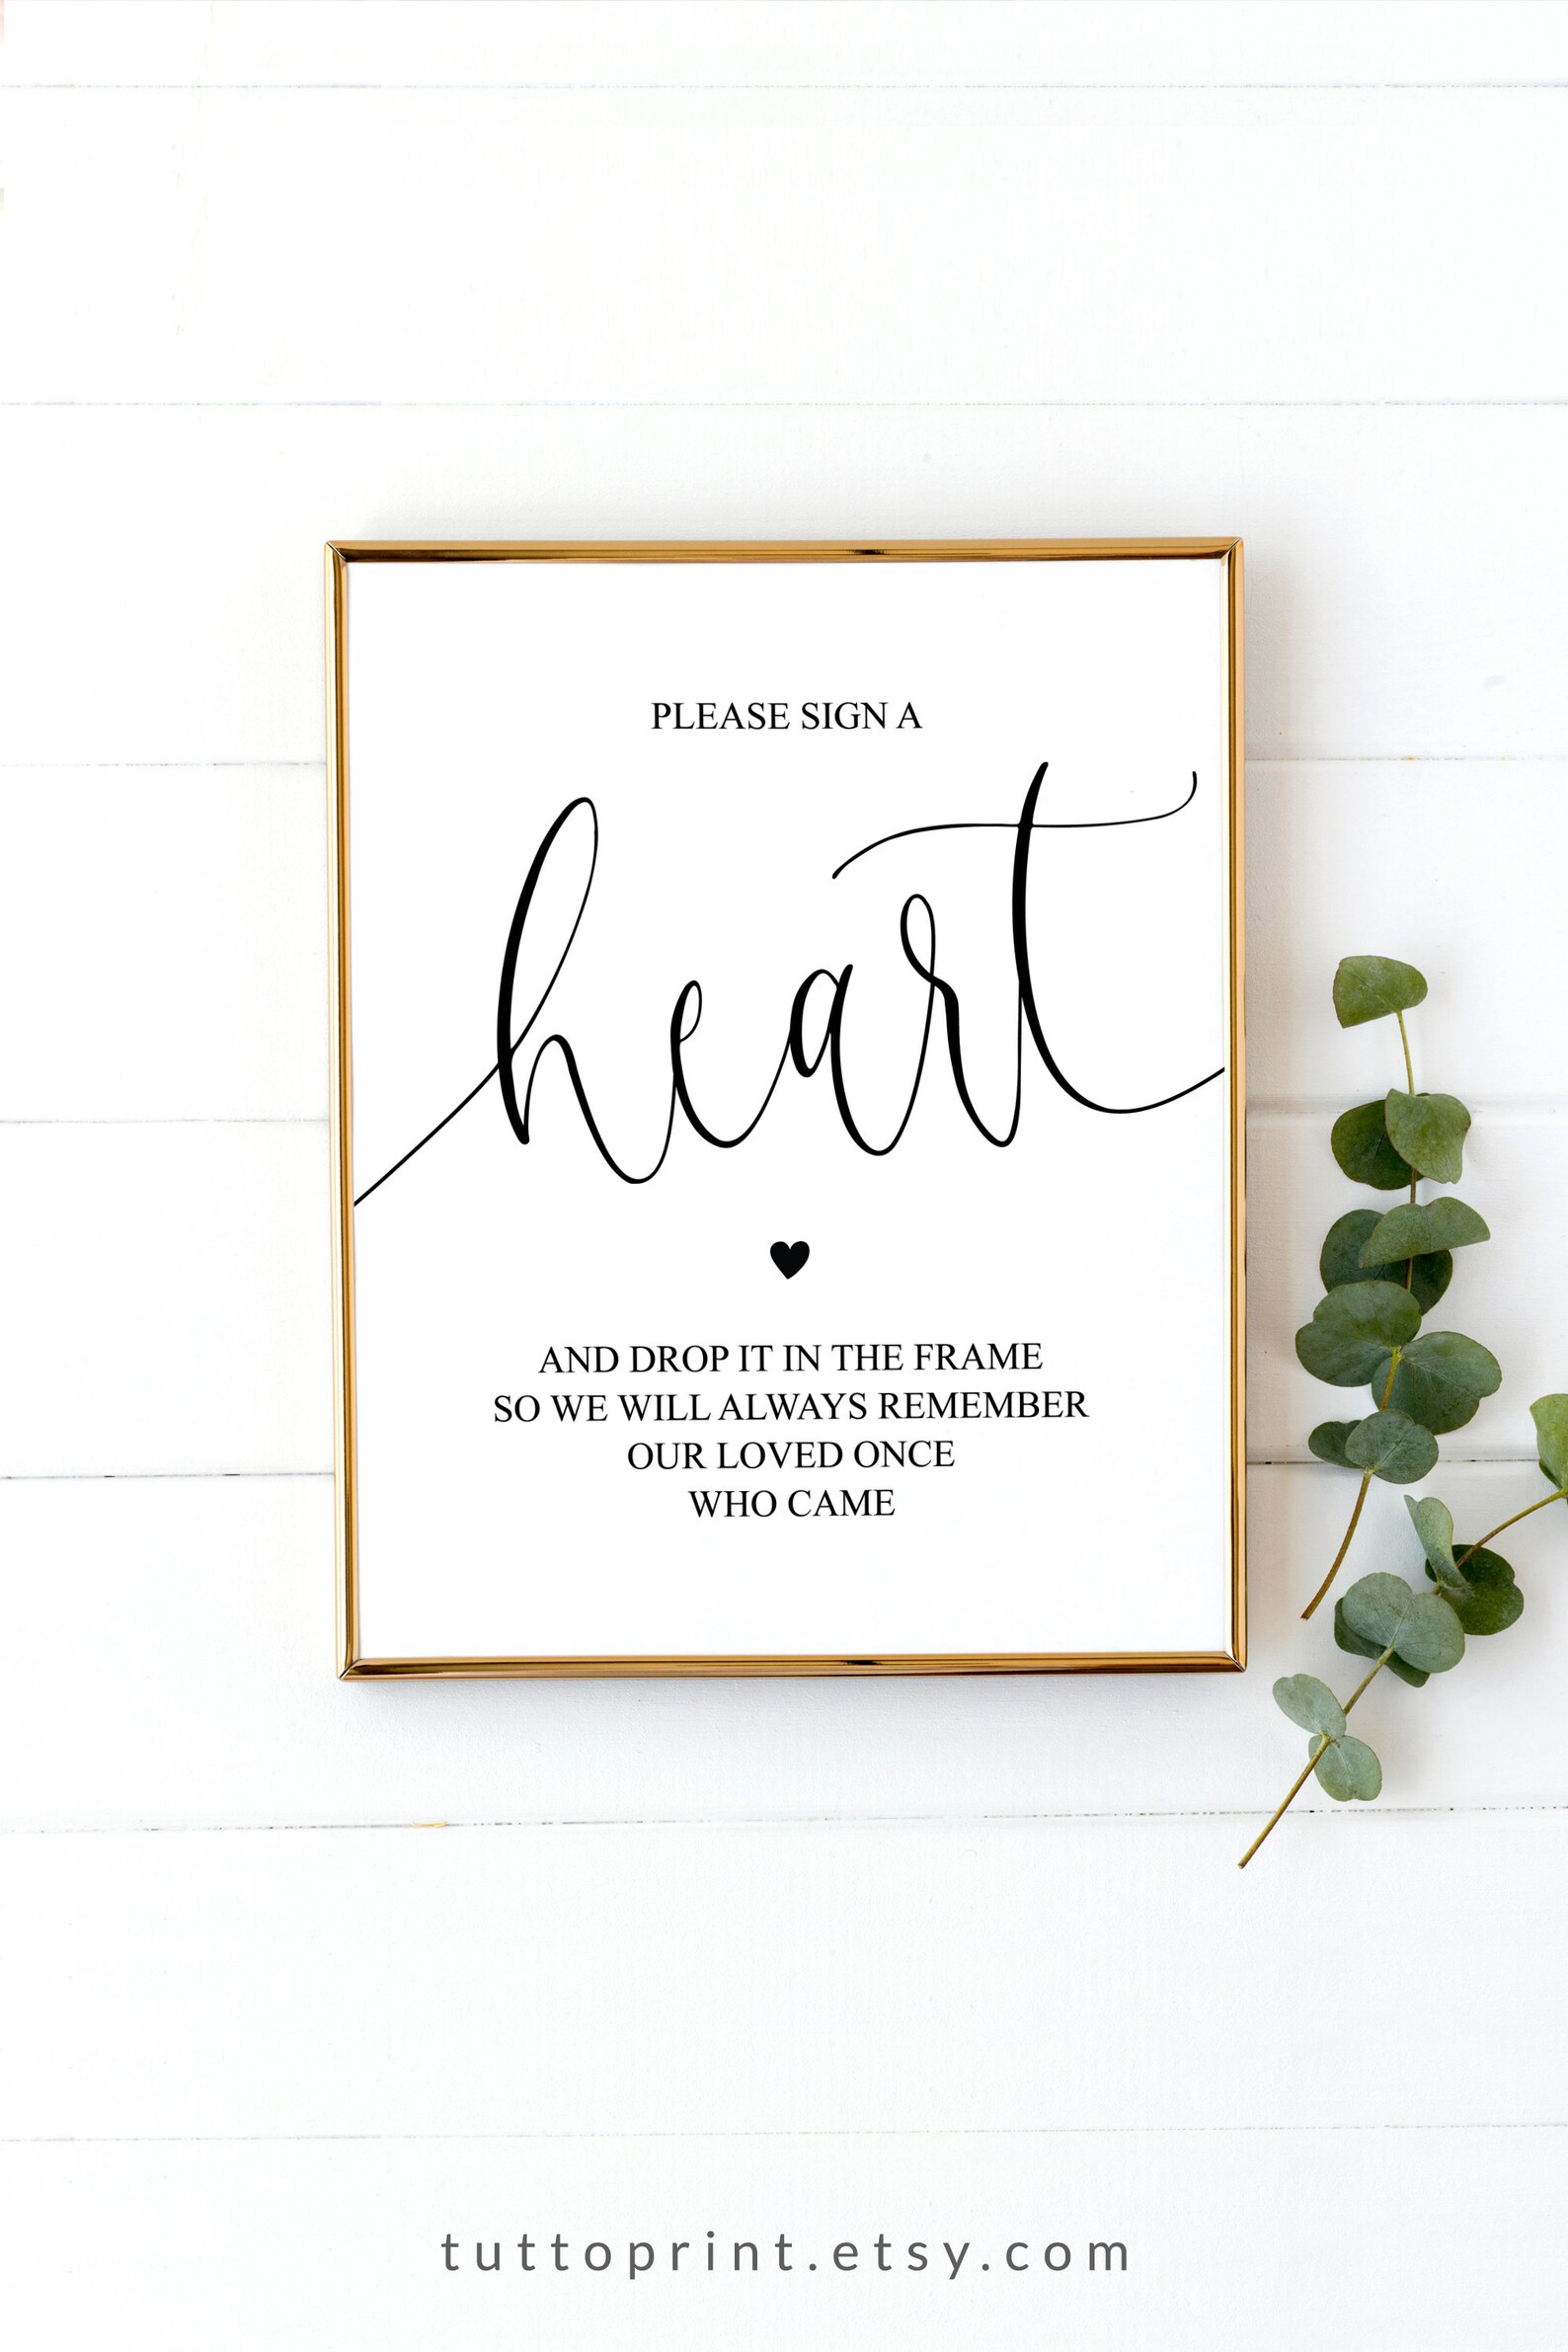 PLEASE SIGN A
heart
AND DROP IT IN THE FRAME
SO WE WILL ALWAYS REMEMBER
OUR LOVED ONCE
WHO CAME
tuttoprint.etsy.com